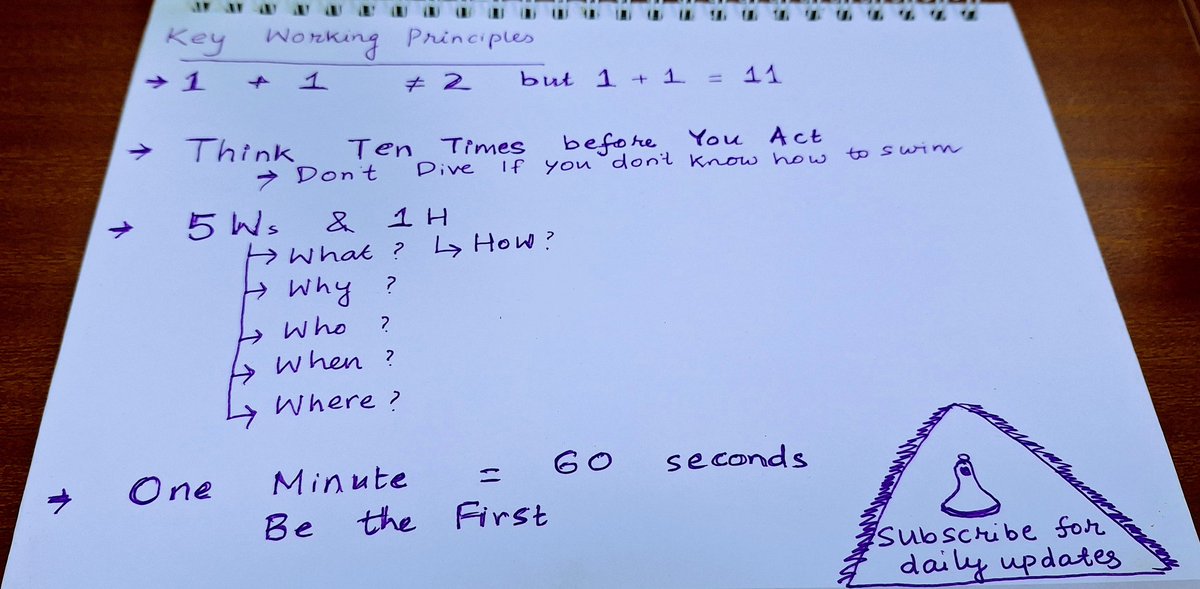 Key Working Principles
→ 1 + 1 ≠ 2 but 1 + 1 = 11
→ Think Ten Times before You Act
→ Don't Dive If you don't know how to swim
→ 5 Ws & 1 H
↳ What ? ↳ How ?
↳ Why ?
↳ Who ?
↳ When ?
↳ Where ?
→ One Minute = 60 seconds
Be the First
Subscribe for
daily updates